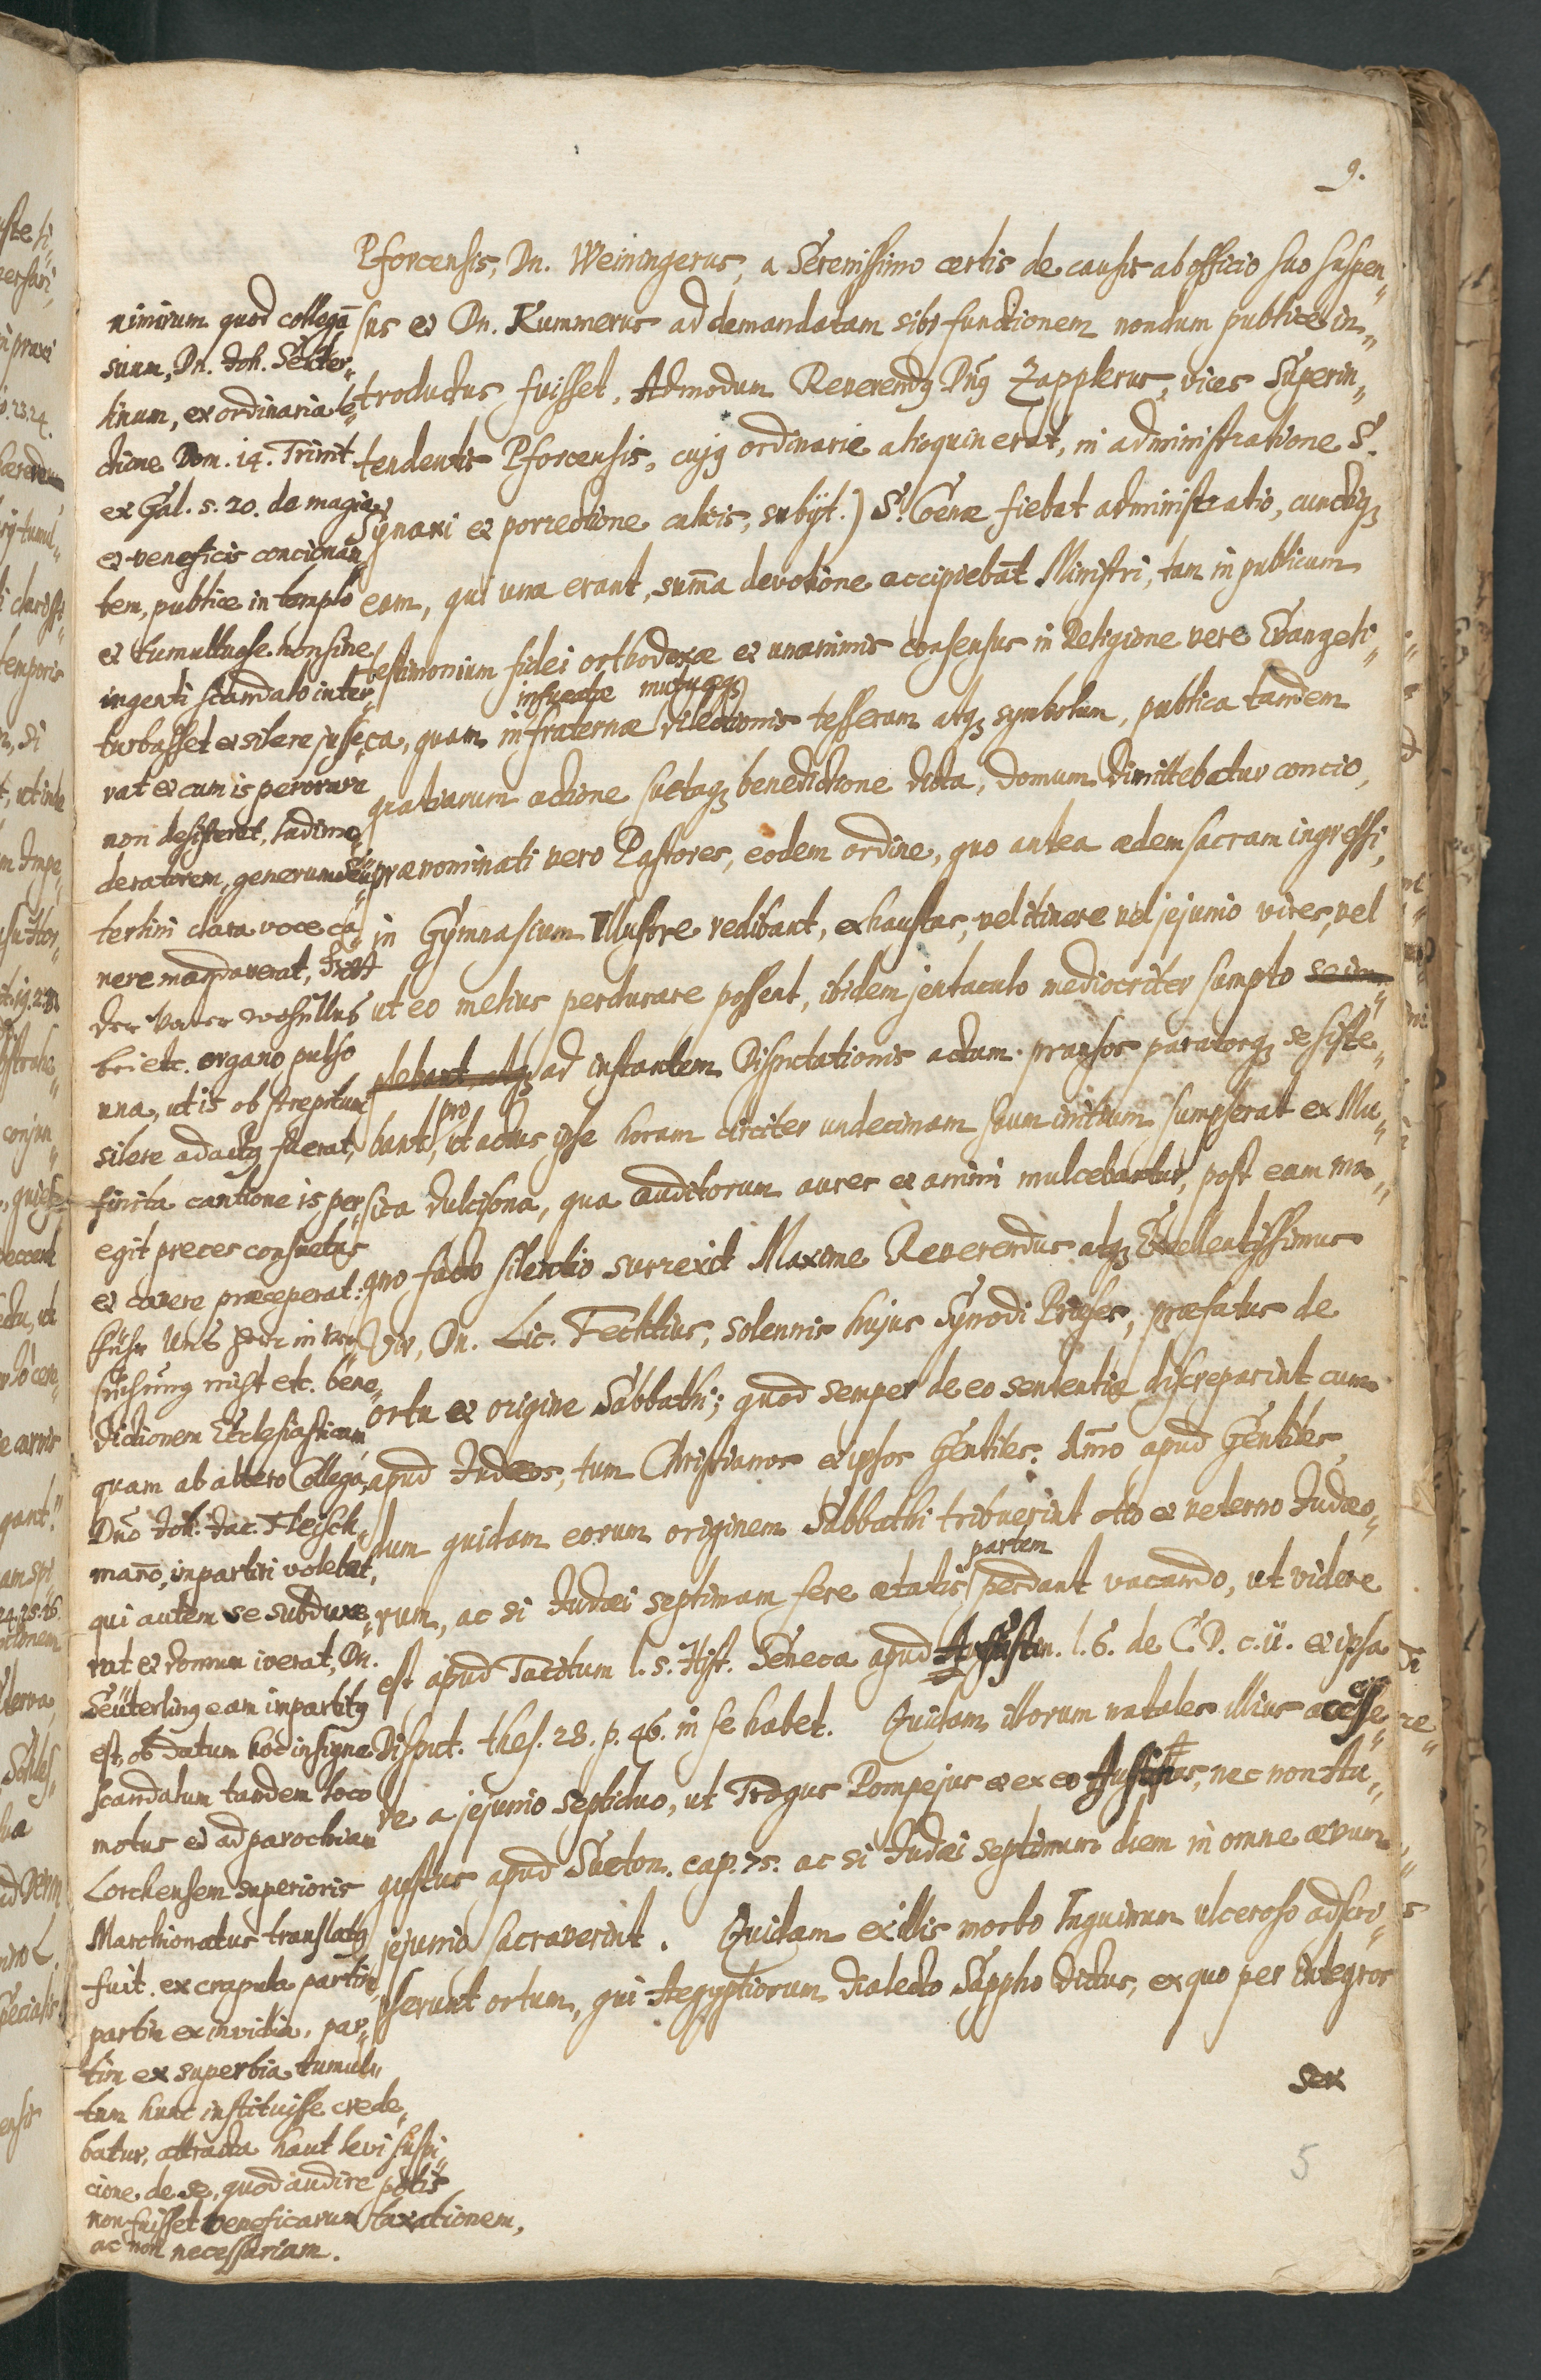 9.
Pforcensis, Dn. Weiningerus, a Serenissimo certis de causis ab officio suo suspen„
sus et Dn. Kummerus ad demandatam sibi functionem nondum publice in„
troductus fuisset, Admodum Reverendq Dnq Zapplerus, vices Superin„
tendentis Pforcensis, cujq ordinarie alioquin erat, in administratione S.
Synaxi et porrectione calicis, subijt.) S. Coenæ fiebat administratio, cunctiqz
eam, qui una erant, sum̄a devotione accipiebāt Ministri, tam in publicum
testimonium fidei orthodoxæ et unanimis consensus in Religione vere Evangeli„
insucatæ mutuæqz
ca, quam in fraternæ dilectionis tesseram atqz symbolum, publica tandem
gratiarum actione suetaqz benedictione dicta, domum dimittebatur concio,
prænominati vero Pastores, eodem ordine, quo antea ædem sacram ingressi,
in Gymnasium Illustre redibant, exhaustas, vel itinere vel jejunio vires, vel
ut eo melius perdurare possent, ibidem jentaculo mediocriter sumpto se im„
plebant, atqz ad instantem Disputationis actum pransos paratosqz se siste„
pro
bant, ut actus ipse horam circiter undecimam suum initium sumpserat ex Mu„
sica dulcisona, qua auditorum aures et animi mulcebantur, post eam ma„
gno facto silentio surrexit Maxime Reverendus atqz Excellentissimus
Vir, Dn. Lic. Fechtius, solennis hujus Synodi Præses, præfatus de
ortu et origine Sabbathi; quod semper de eo sententiæ discreparint cum
apud Judæos, tum Christianos et ipsos Gentiles. Im̄o apud Gentiles,
dum quidam eorum originem Sabbathi tribuerint otio et veterno Judæo„
partem
rum, ac si Judæi septimam fere ætatis perdant vacando, ut videre
est apud Tacitum l. 5. Hist. Seneca apud Augustin. l. 6. de C. D. c. ii. et ipsa
Disput. thes. 28. p. 46. in se habet. Quidam illorum natales illius accesse„
re a jejunio septiduo, ut Trogus Pompejus et ex eo Justinus, nec non Au„
gustus apud Sueton. cap. 75. ac si Judæi septimum diem in omne ævum
jejunio sacraverint. Quidam ex illis morbo Inguinum ulceroso adscri„
pserunt ortum, qui Aegyptiorum dialecto Sappho dictus, ex quo per integros
sex
5
nimirum quod collegā
suum, Dn. Joh. Seüter„
linum, ex ordinaria le„
ctione Dom. 14. Trinit.
ex Gal. 5. 20. de magia
et veneficis concionan„
tem, publice in templo
et tumultuose non sine
ingenti scandalo inter„
turbasset et silere jusse„
rat et cum is perorare
non desisteret, Ludimo„
deratorem, generum Seü„
terlini clara voce ca„
nere mandaverat, Gott
der Vater wohn Uns
bei etc. organo pulso
una, ut is ob strepitum
silere adactq fuerat,
finita cantione is per„
egit preces consuetas
et canere præceperat:
führ Uns Herr in Ver„
suchung nicht etc. bene„
dictionem Ecclesiasticam,
quam ab altero Collega,
Dnō Joh. Jac. Fleisch„
man̄o, inpartiri volebat,
qui autem se subduxe„
rat et domum iverat, Dn.
Seüterlinq eam impartitq
est, ob datum hoc insigne
scandalum tandem loco
motus et ad parochiam
Lorchensem superioris
Marchionatus translatq
fuit. ex crapula partim,
partim ex invidia, par„
tim ex superbia tumul„
tum hunc instituisse crede„
batur, attracta haut levi suspi„
cione de se, quod audire potis
non fuisset veneficarum taxationem,
ac non necessariam.